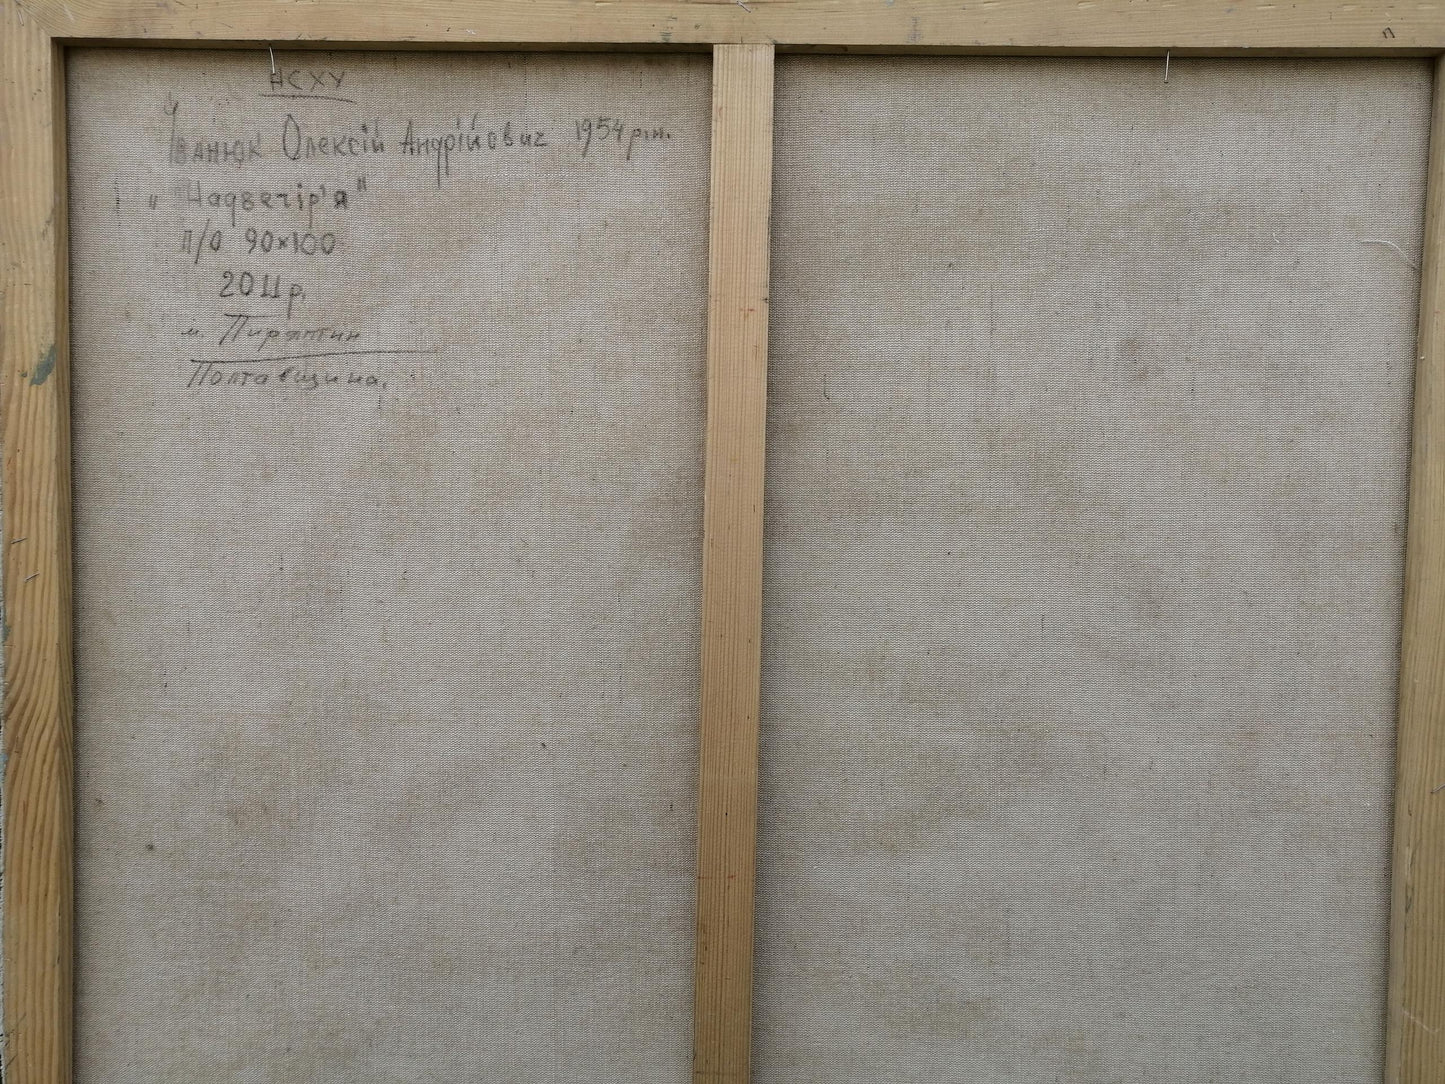 НСХУ
Іванюк Олексій Андрійович 1954 р.н.
„ "Надвечір'я"
п/о 90×100
2011р.
м. Пирятин
Полтавщина.
п